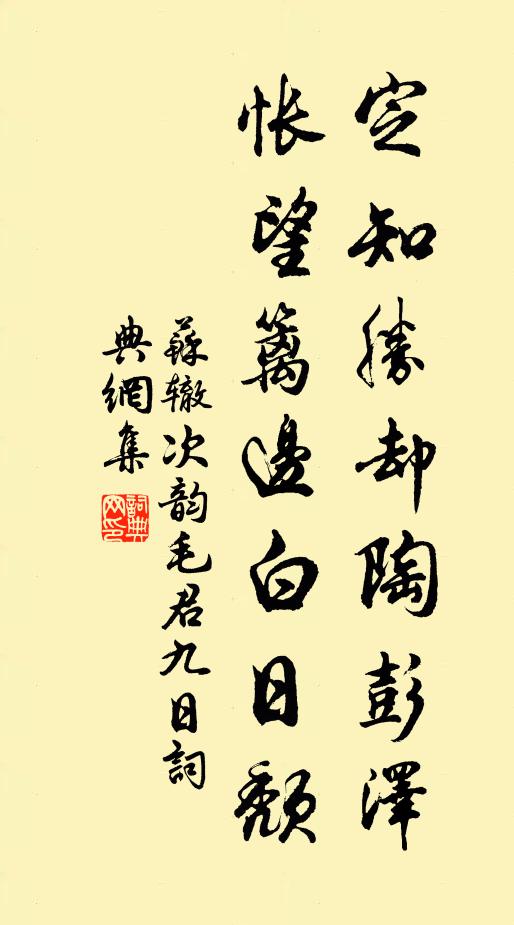 定知勝却陶彭澤
悵望篱邊白日頽
蘇辙次韵毛君九日詞
典網集
詞典网印